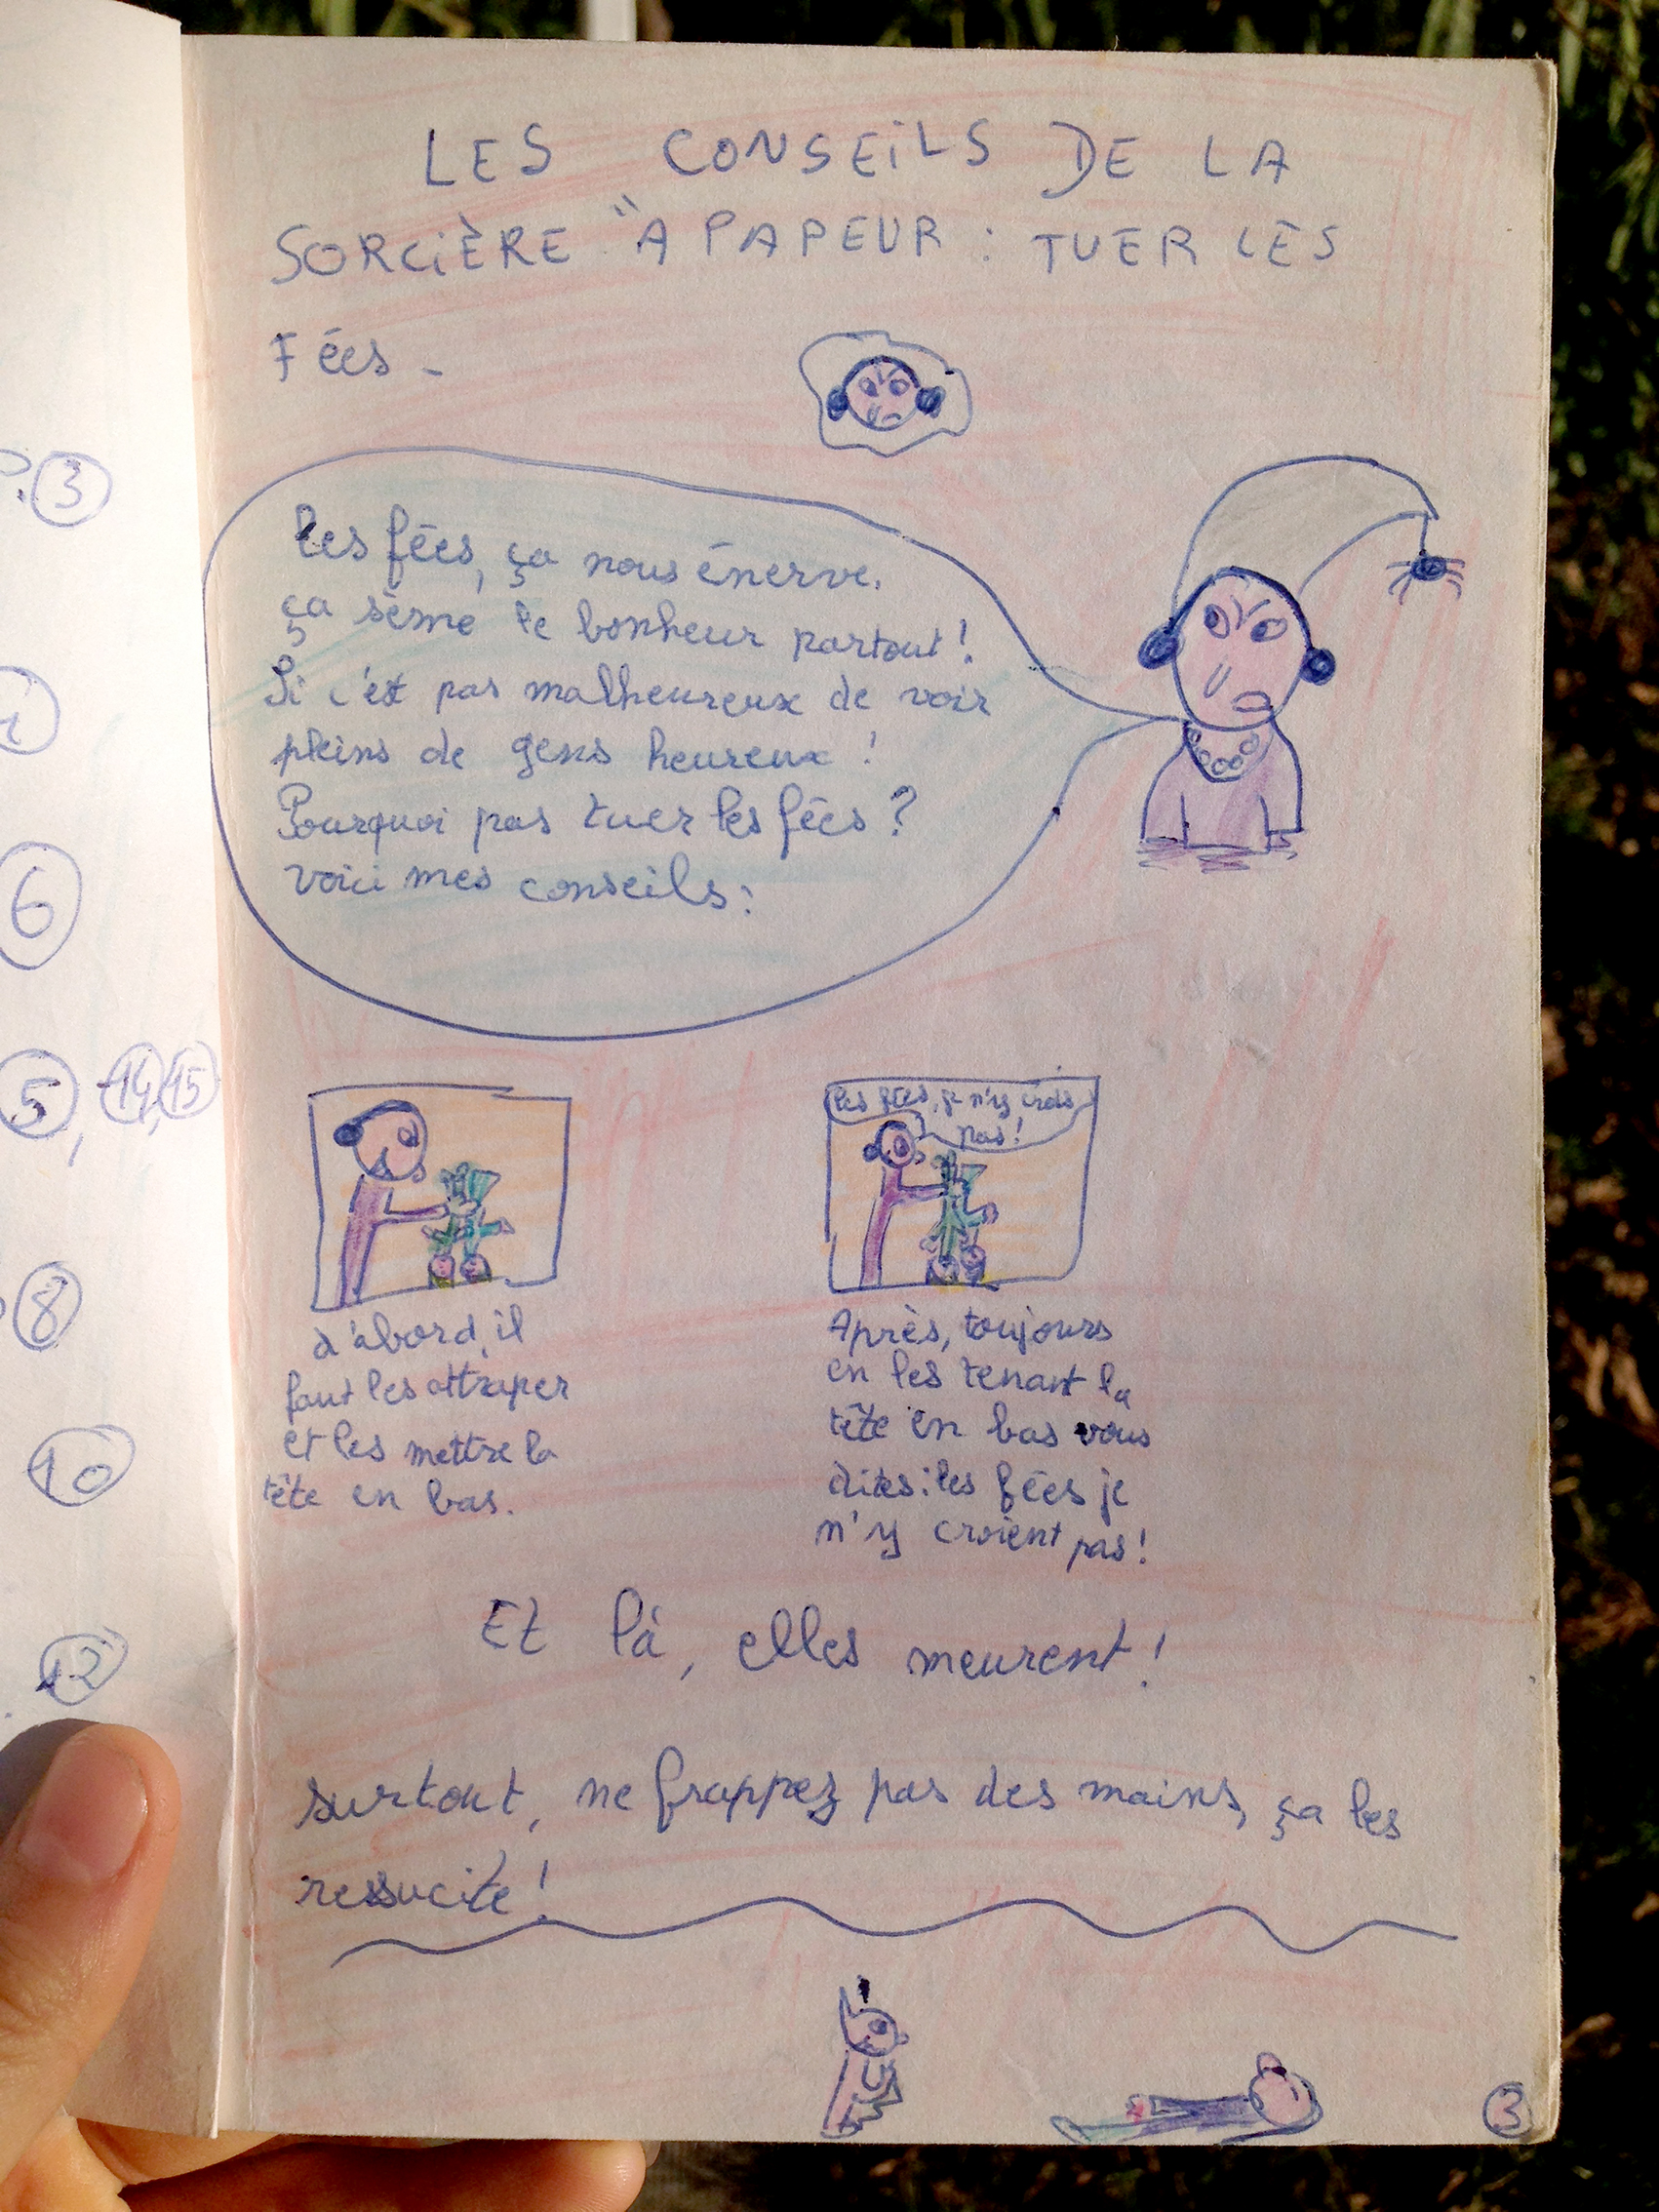 LES CONSEiLS DE LA
SORCiÈRE "A PAPEUR : TUER LES
Fées -
les fées, ça nous énerve.
ça sème le bonheur partout!
Si c'est pas malheureux de voir
pleins de gens heureux !
Pourquoi pas tuer les fées ?
voici mes conseils :
les fées, je n'y crois
pas !
d'abord, il
faut les attraper
et les mettre la
tête en bas.
Après, toujours
en les tenant la
tête en bas vous
dites : les fées je
n'y croient pas !
Et là, elles meurent !
surtout, ne frappez pas des mains, ça les
ressucite !
3
3
6
5, 14, 15
8
10
12